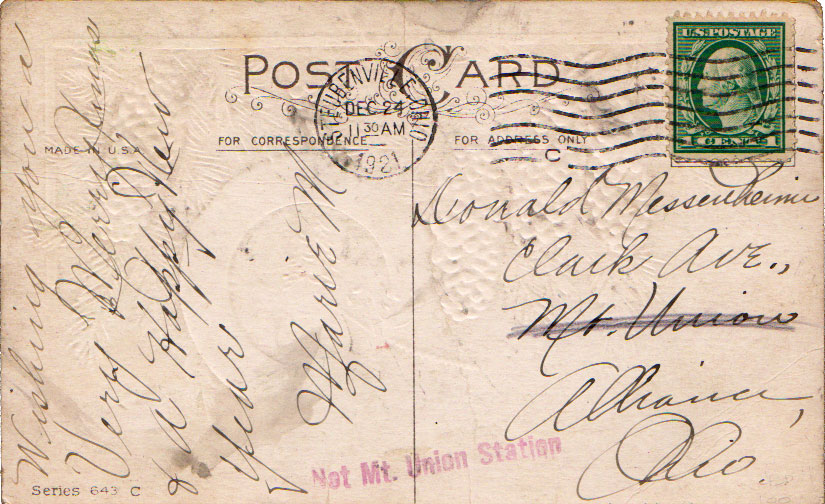 POST CARD
STEUBENVILLE OHIO
DEC 24
11 30 AM
1921
C
U.S. POSTAGE
1 CENT 1
FOR CORRESPONDENCE
FOR ADDRESS ONLY
MADE IN U.S.A.
Wishing you a
Very Merry Xmas
& a Happy New
Year
Marie M
Donald Messenheimer
Clark Ave.,
Mt. Union
Alliance,
Ohio.
Not Mt. Union Station
Series 643 C